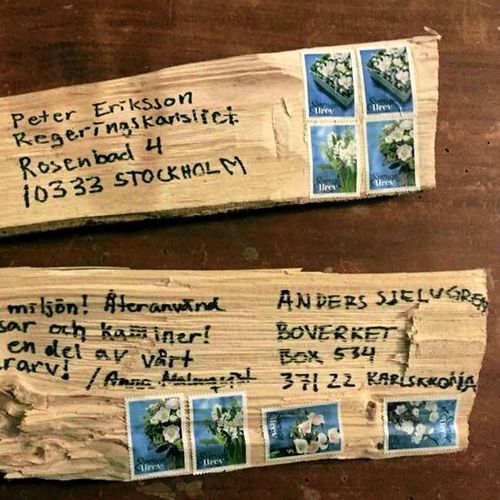 Peter Eriksson
Regeringskansliet
Rosenbad 4
10333 STOCKHOLM
Sverige Brev
Sverige Brev
Sverige Brev
Sverige Brev
miljön! Återanvänd
sar och Kaminer!
en del av vårt
rarv!
ANDERS SJELVGREN
BOVERKET
BOX 534
371 22 KARLSKRONA
Sverige Brev
Sverige Brev